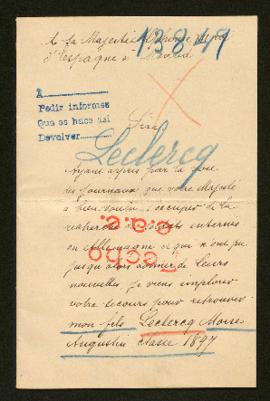 A sa Majesté
13849
d'Espagne à Madrid
A
Pedir informes
Que se hace así
Devolver
Sire
Leclercq
Ayant appris par la voie
des journaux que votre Majesté
a bien voulu s'occuper de la
recherche de soldats internés
en Allemagne et qui n'ont pu
jusqu'alors donner de leurs
nouvelles je viens implorer
votre secours pour retrouver
mon fils Leclercq Moïse
Augustin classe 1897
Fecho